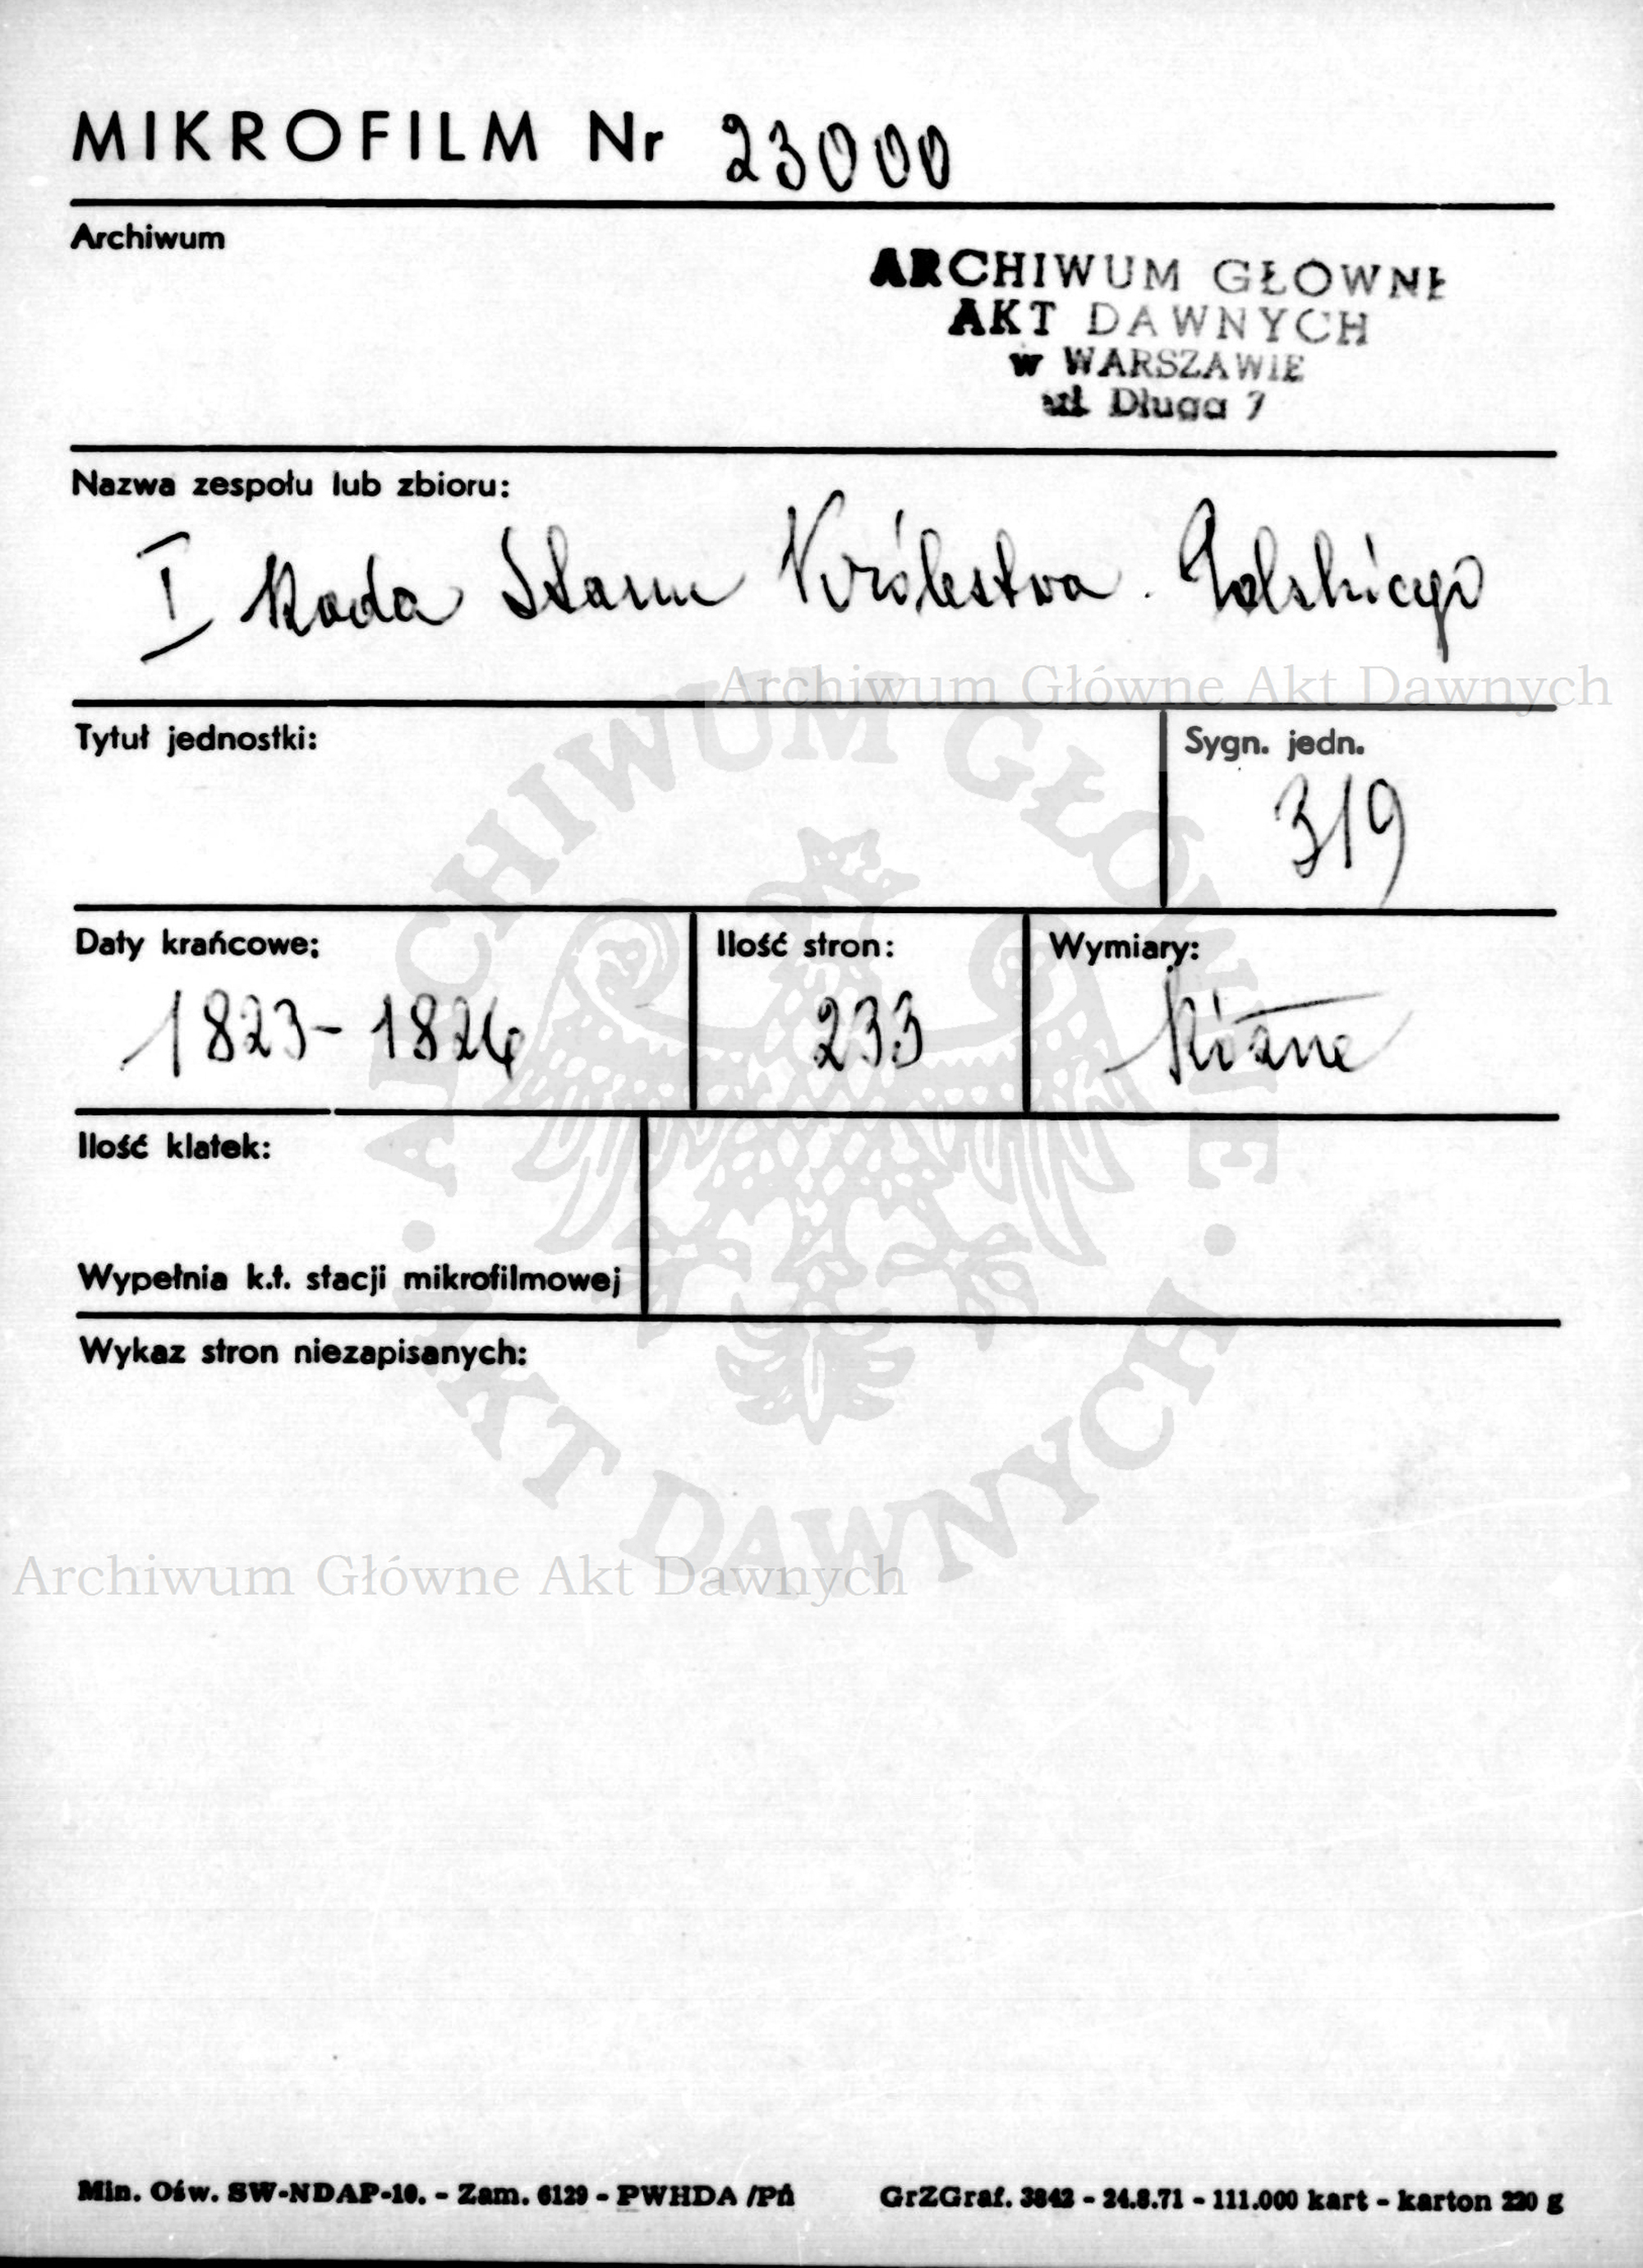 MIKROFILM Nr 23000
Archiwum
ARCHIWUM GŁÓWNE
AKT DAWNYCH
w WARSZAWIE
ul. Długa 7
Nazwa zespołu lub zbioru:
I Rada Stanu Królestwa Polskiego
Archiwum Główne Akt Dawnych
Tytuł jednostki:
Sygn. jedn.
319
Daty krańcowe:
1823-1826
Ilość stron:
233
Wymiary:
Różne
Ilość klatek:
Wypełnia k.t. stacji mikrofilmowej
Wykaz stron niezapisanych:
ARCHIWUM GŁÓWNE
AKT DAWNYCH
Archiwum Główne Akt Dawnych
Min. Ośw. SW-NDAP-10. - Zam. 6129 - PWHDA /Pń
GrZGraf. 3842 - 24.8.71 - 111.000 kart - karton 220 g